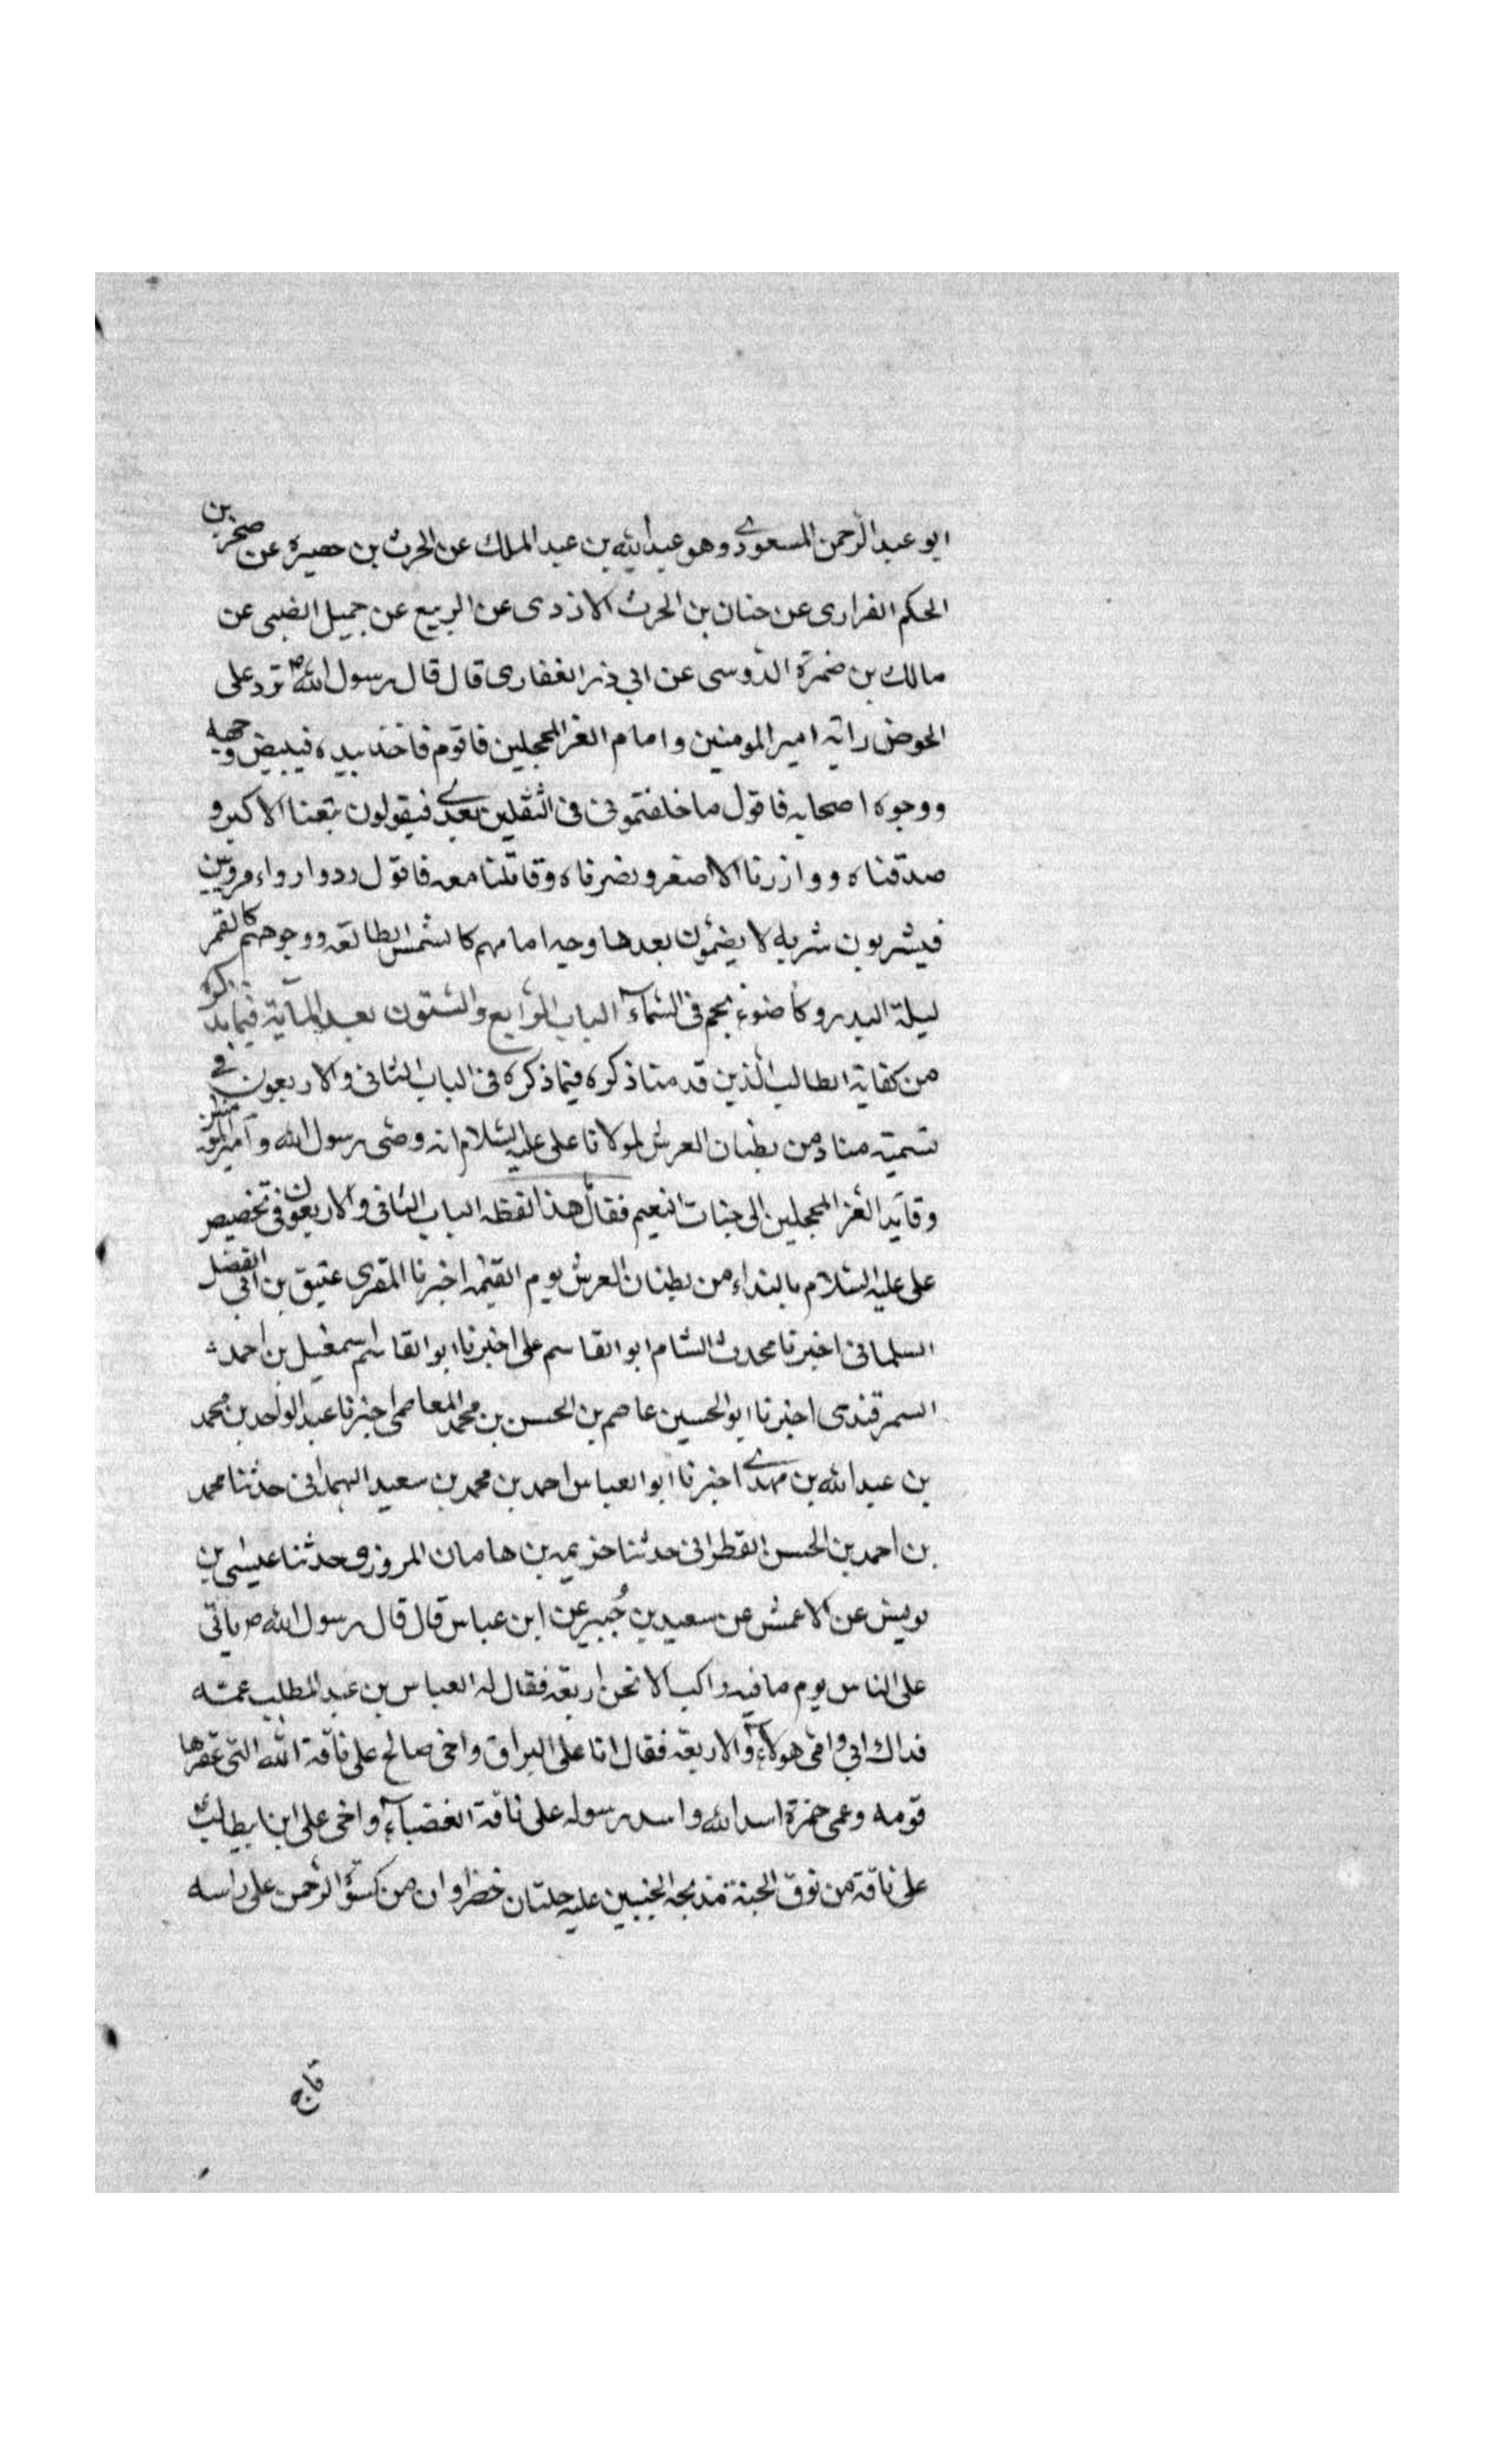 ابو عبد الرحمن المسعودي وهو عبد الله بن عبد الملك عن الحرث بن حصيرة عن صخر بن
الحكم الفرارى عن حنان بن الحرث الازدى عن الربيع عن جميل الضبى عن
مالك بن ضمرة الدوسى عن ابي ذر الغفارى قال قال رسول الله ص ترد على
الحوض راية امير المومنين وامام الغر المحجلين فاقوم فاخذ بيده فيبيض وجهه
ووجوه اصحابه فاقول ما خلفتمونى فى الثقلين بعدي فيقولون تبعنا الاكبر و
صدقناه ووازرنا الاصغر ونصرناه وقاتلنا معه فاقول ردوا رواء مرويين
فيشربون شربه لا يضمؤن بعدها وجه امامهم كالشمس الطالعه ووجوههم كالقمر
ليلة البدر وكاضوء نجم فى السماء الباب الرابع والستون بعد المآية فيما نذكره
من كفاية الطالب الذين قدمنا ذكره فيما ذكره فى الباب الثانى والاربعون في
تسمية مناد من بطنان العرش لمولانا على عليه السلام انه وصى رسول الله وامير المومنين
وقايد الغر المحجلين الى جنات النعيم فقال هذا لفظه الباب الثانى والاربعون فى تخصيص
على عليه السلام بالنداء من بطنان العرش يوم القيمه اخبرنا المقرى عتيق بن ابى الفضل
السلمانى اخبرنا محدث الشام ابو القاسم على اخبرنا ابو القاسم اسمعيل بن احمد
السمرقندى اخبرنا ابو الحسين عاصم بن الحسن بن محمد المعاصمى اخبرنا عبد الواحد بن محمد
بن عبد الله بن مهدي اخبرنا ابو العباس احمد بن محمد بن سعيد الهمدانى حدثنا محمد
بن احمد بن الحسن القطرانى حدثنا خزيمه بن هامان المروزى حدثنا عيسى بن
يونس عن الاعمش عن سعيد بن جُبير عن ابن عباس قال قال رسول الله ص ياتى
على الناس يوم ما فيه راكب الا نحن اربعة فقال له العباس بن عبد المطلب عمه
فداك ابي وامى هولاء الاربعة فقال انا على البراق واخى صالح على ناقة الله التى عقرها
قومه وعمى حمزة اسد الله واسد رسوله على ناقة الغضباء واخى على ابن ابيطالب
على ناقة من نوق الجنة مدبجة الجنبين عليه حلتان خضراوان من كسوة الرحمن على راسه
تاج